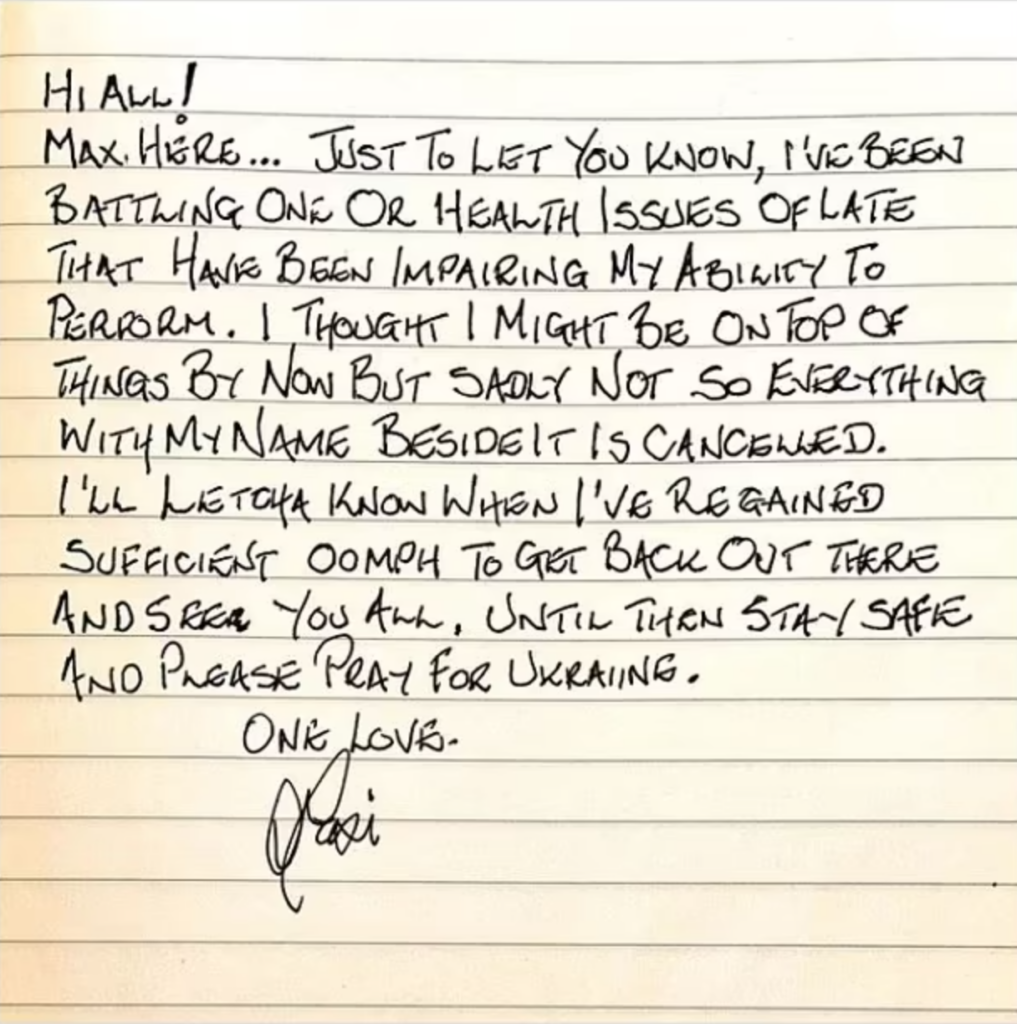 HI ALL!
MAX. HERE... JUST TO LET YOU KNOW, I'VE BEEN
BATTLING ONE OR HEALTH ISSUES OF LATE
THAT HAVE BEEN IMPAIRING MY ABILITY TO
PERFORM. I THOUGHT I MIGHT BE ON TOP OF
THINGS BY NOW BUT SADLY NOT SO EVERYTHING
WITH MY NAME BESIDE IT IS CANCELLED.
I'LL LETCHA KNOW WHEN I'VE REGAINED
SUFFICIENT OOMPH TO GET BACK OUT THERE
AND SEE YOU ALL, UNTIL THEN STAY SAFE
AND PLEASE PRAY FOR UKRAIINE.
ONE LOVE.
Maxi